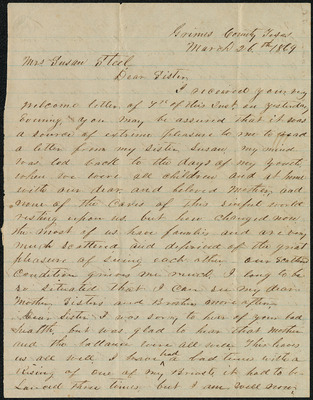 Grimes County Texas
March 26th 1869
Mrs Susan Steel
Dear Sister
I received your very
welcome letter of 7st of this Inst. on yesterday
evening & you may be assured that it was
a source of extreme pleasure to me to read
a letter from my Sister Susan my mind
was led back to the days of my youth
when we were all children and at home
with our dear and beloved Mother, and
none of the Cares of this sinful world
resting upon us. but how changed now,
the most of us have families and are very
much scattered and deprived of the great
pleasure of seeing each other our scattered
Condition grieves me much. I long to be
so situated that I can see my dear
Mother, Sisters and Brother more often,
Dear Sister I was sorry to hear of your bad
health, but was glad to hear that Mother
and the ballance were all well. This leaves
us all well, I have had a bad times with a
rising of one of my Breasts it had to be
Lanced three times but I am well now,